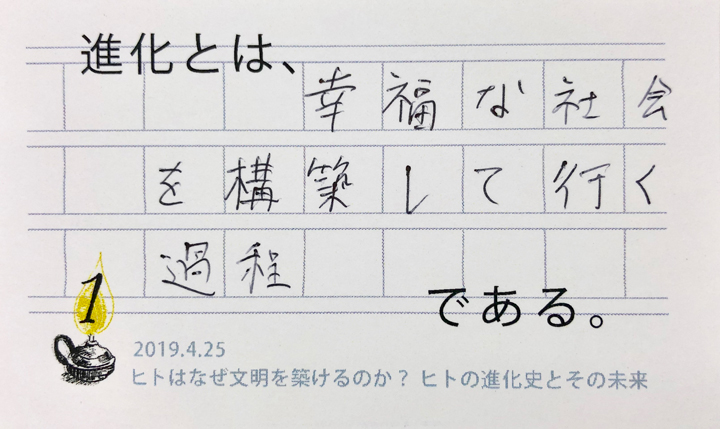 進化とは、
幸福な社会
を構築して行く
過程
である。
1
2019.4.25
ヒトはなぜ文明を築けるのか？ ヒトの進化史とその未来